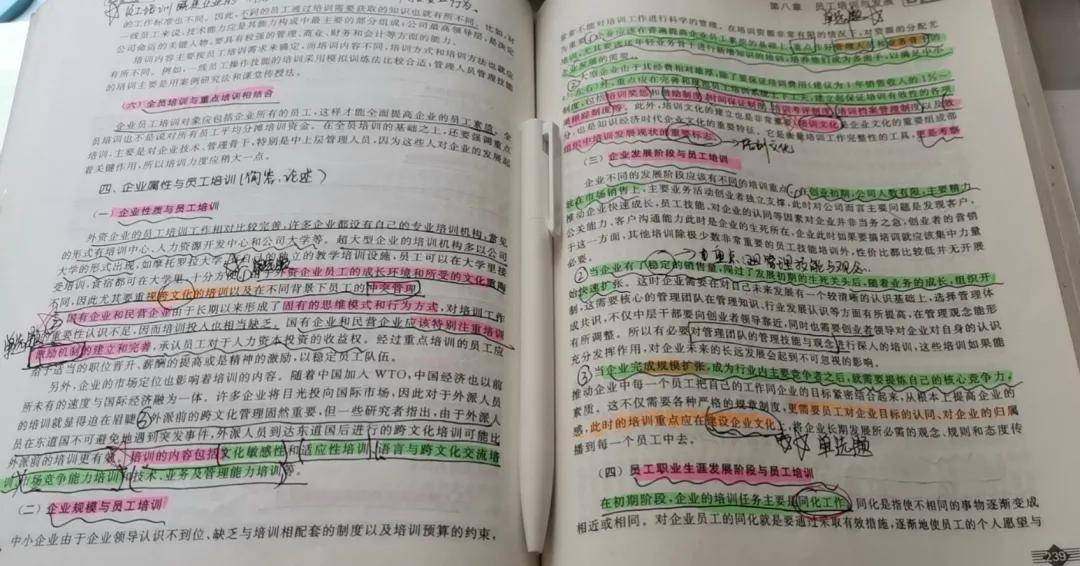 的工作标准也不同。因此,不同的员工通过培训需要获取的知识也就有所不同。比如,对
一线员工来说,技术能力应是其能力构成中最主要的部分组成;公司最高领导层,是决定
公司命运的关键人物,要具有较强的管理、商业、财务和会计等方面的能力。
培训内容主要按员工培训需求来确定,而培训内容不同,培训方式和培训方法也就应
有所不同。例如,一线员工操作技能的培训采用模拟训练法比较合适,管理人员管理技能
的培训主要是用案例研究法和课堂传授法。
(六)全员培训与重点培训相结合
企业员工培训对象应包括企业所有的员工,这样才能全面提高企业的员工素质。全
员培训也不是说对所有员工平均分摊培训资金。在全员培训的基础之上,还要强调重点
培训,主要是对企业技术、管理骨干,特别是中上层管理人员,因为这些人对企业的发展起
着关键作用,所以培训力度应稍大一点。
四、企业属性与员工培训(简答、论述)
(一)企业性质与员工培训
外资企业的员工培训工作相对比较完善,许多企业都设有自己的专业培训机构,常见
的形式有培训中心、人力资源开发中心和公司大学等。超大型企业的培训机构多以公司
大学的形式出现,如摩托罗拉大学
的教学培训设施,员工可以在大学里接
受培训,食宿都可在大学里,十分方
外资企业员工的成长环境和所受的文化
不同,因此尤其要重视跨文化的培训以及在不同背景下员工的冲突管理
国有企业和民营企业由于长期以来形成了固有的思维模式和行为方式,对培训工作
重要性认识不足,因而培训投入也相当缺乏。国有企业和民营企业应该特别注重培训
激励机制的建立和完善,承认员工对于人力资本投资的收益权。经过重点培训的员工应
给予适当的职位晋升、薪酬的提高或是精神的激励,以稳定员工队伍。
另外,企业的市场定位也影响着培训的内容。随着中国加入 WTO,中国经济也以前
所未有的速度与国际经济融为一体。许多企业将目光投向国际市场,因此对于外派人员
的培训就显得迫在眉睫②外派前的跨文化管理固然重要,但一些研究者指出,由于外派人
员在东道国不可避免地遇到突发事件,外派人员到达东道国后进行的跨文化培训可能比
外派前的培训更有效。培训的内容包括文化敏感性和适应性培训、语言与跨文化交流培
训、市场竞争能力培训、技术、业务及管理能力培训等。
(二)企业规模与员工培训
中小企业由于企业领导认识不到位、缺乏与培训相配套的制度以及培训预算的约束,
第八章 员工培训与发展
单选题
常常不能对培训工作进行科学的管理。在培训资源非常有限的情况下,对资源的分配尤
为重要
大型企业由于其经费相对雄厚,除了要保证培训费用(建议为1年销售收入的1%~
制度,包括培训奖惩和激励制度、时间保证制度、培训考评制度、培训档案管理制度以及效
果跟踪制度等。此外,培训文化的建立也是非常重要的,培训文化是企业文化的重要组成部
分,也是知识经济时代企业文化的重要特征。它是衡量培训工作完整性的工具,更是考察
组织中培训发展现状的重要标志→培训文化
(三)企业发展阶段与员工培训
企业不同的发展阶段应该有不同的培训重点。①创业初期,公司人数有限,主要精力
放在市场销售上,主要业务活动创业者独立支撑,此时对公司而言主要问题是发现客户,
推动企业快速成长,员工技能、对企业的认同等因素对企业并非当务之急,创业者的营销
公关能力、客户沟通能力此时是企业的生死所在,企业此时如果要搞培训就应该集中力量
于这一方面,其他培训除极少数非常重要的员工技能培训外,性价比都比较低并无开展
必要。
②当企业有了稳定的销售量,闯过了发展初期的生死关头后,随着业务的成长,组织开
始快速扩张。这时企业需要在对自己未来发展有一个较清晰的认识基础上,选择管理体
制,这需要核心的管理团队在管理知识、行业发展认识等方面有所提高,在管理观念能形
成共识,不仅中层干部要向创业者领导靠近,同时也需要创业者领导对企业对自身的认识
有所调整。所以有必要对管理团队的管理技能与观念进行深入的培训,这些培训如果能
充分发挥作用,对企业未来的长远发展会起到不可忽视的影响。
③当企业完成规模扩张,成为行业内主要竞争者之后,就需要提炼自己的核心竞争力,
推动企业中每一个员工把自己的工作同企业的目标紧密结合起来,从根本上提高企业的
素质。这不仅需要各种严格的规章制度,更需要员工对企业目标的认同、对企业的归属
感,此时的培训重点应在建设企业文化,将企业长期发展所必需的观念、规则和态度传
播到每一个员工中去。
单选题
(四)员工职业生涯发展阶段与员工培训
在初期阶段,企业的培训任务主要是同化工作。同化是指使不相同的事物逐渐变成
相近或相同。对企业员工的同化就是要通过采取有效措施,逐渐地使员工的个人愿望与
239